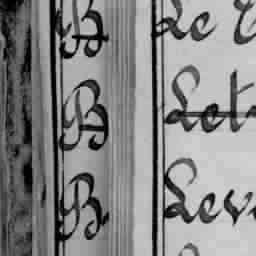 B Le
B Let
B Lev